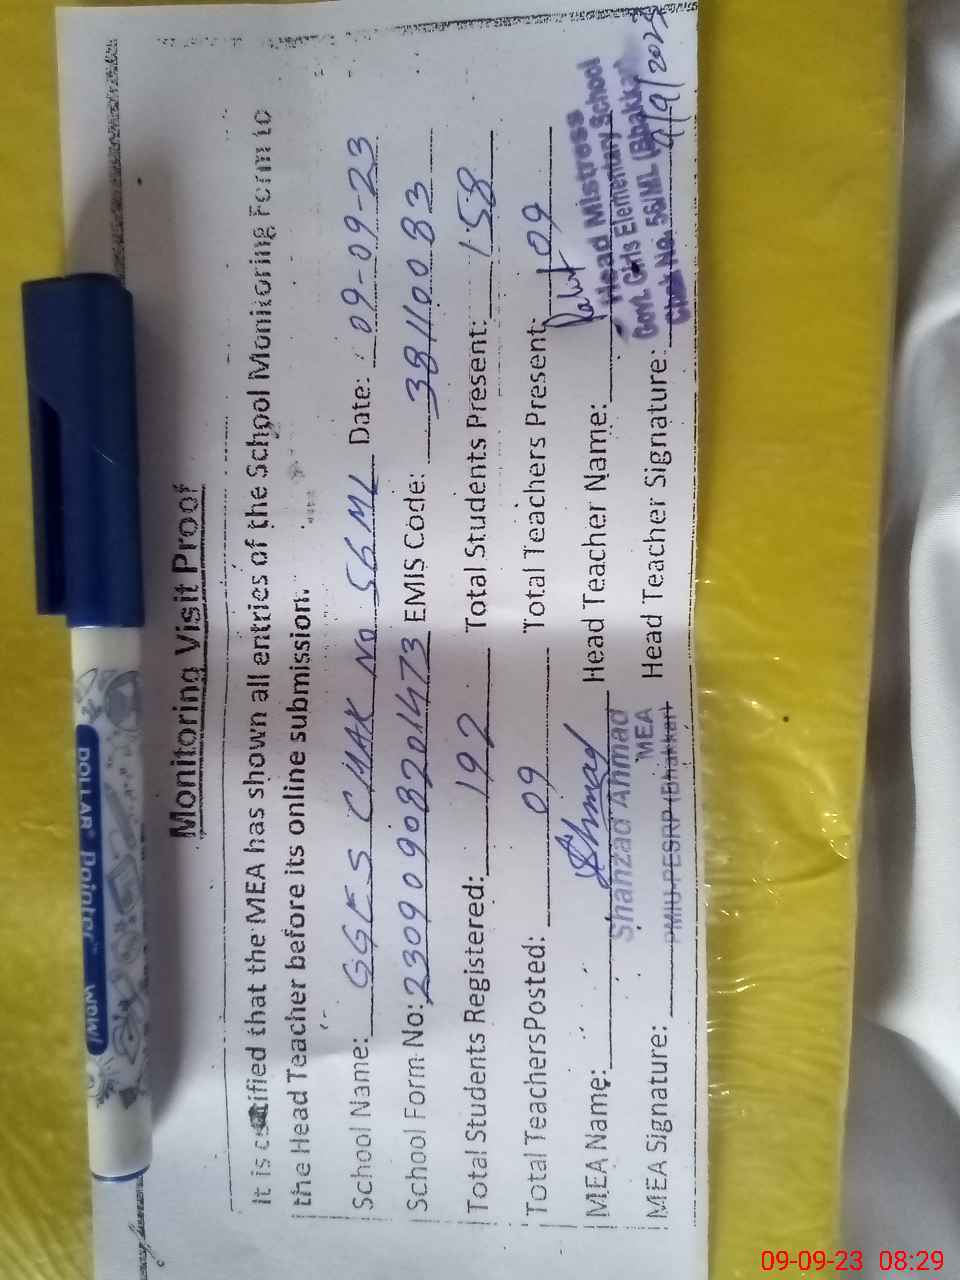 Monitoring Visit Proof
It is certified that the MEA has shown all entries of the School Monitoring Form to
the Head Teacher before its online submission.
School Name: GGES CHAK No 56 ML Date: 09-09-23
School Form No: 23090908201473 EMIS Code: 38110083
Total Students Registered: 192 Total Students Present: 158
Total TeachersPosted: 09 Total Teachers Present: 09
MEA Name: Head Teacher Name:
Shahzad Ahmad
MEA
PMIU-PESRP (Bhakkar)
Head Mistress
Govt. Girls Elementary School
Chak No. 56/ML (Bhakkar)
9/9/2023
MEA Signature: Head Teacher Signature:
DOLLAR Pointer WOW!
09-09-23 08:29